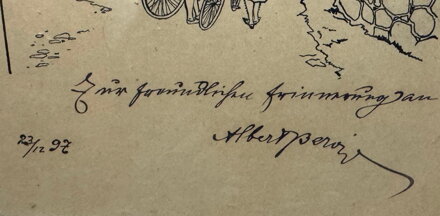 Zur freundlichen Erinnerung an
Albert
23/12 97